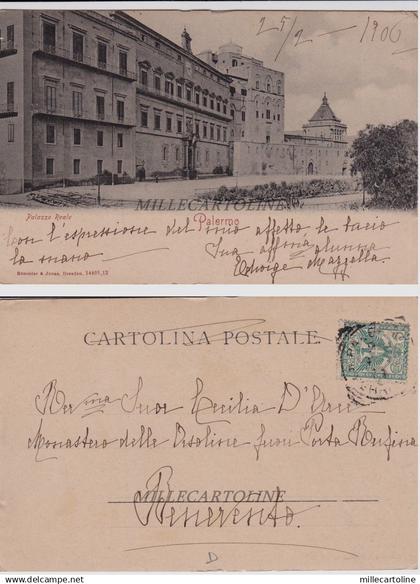 25/2 - 1906
MILLECARTOLINE
Palazzo Reale
Palermo
Con l'espressione del mio affetto le bacio
la mano
Sua affma alunna
Mazzella
Römmler & Jonas, Dresden, 14405,12
CARTOLINA POSTALE.
Rev ma Suor Cecilia D'
Monastero delle Orsoline fuori Porta Rufina
MILLECARTOLINE
Benevento
D
delcampe.net
millecartoline